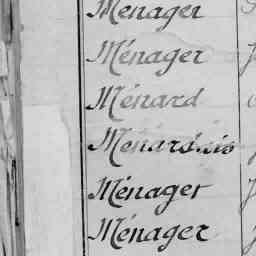 Ménager
Ménager
Ménard
Ménager
Ménager